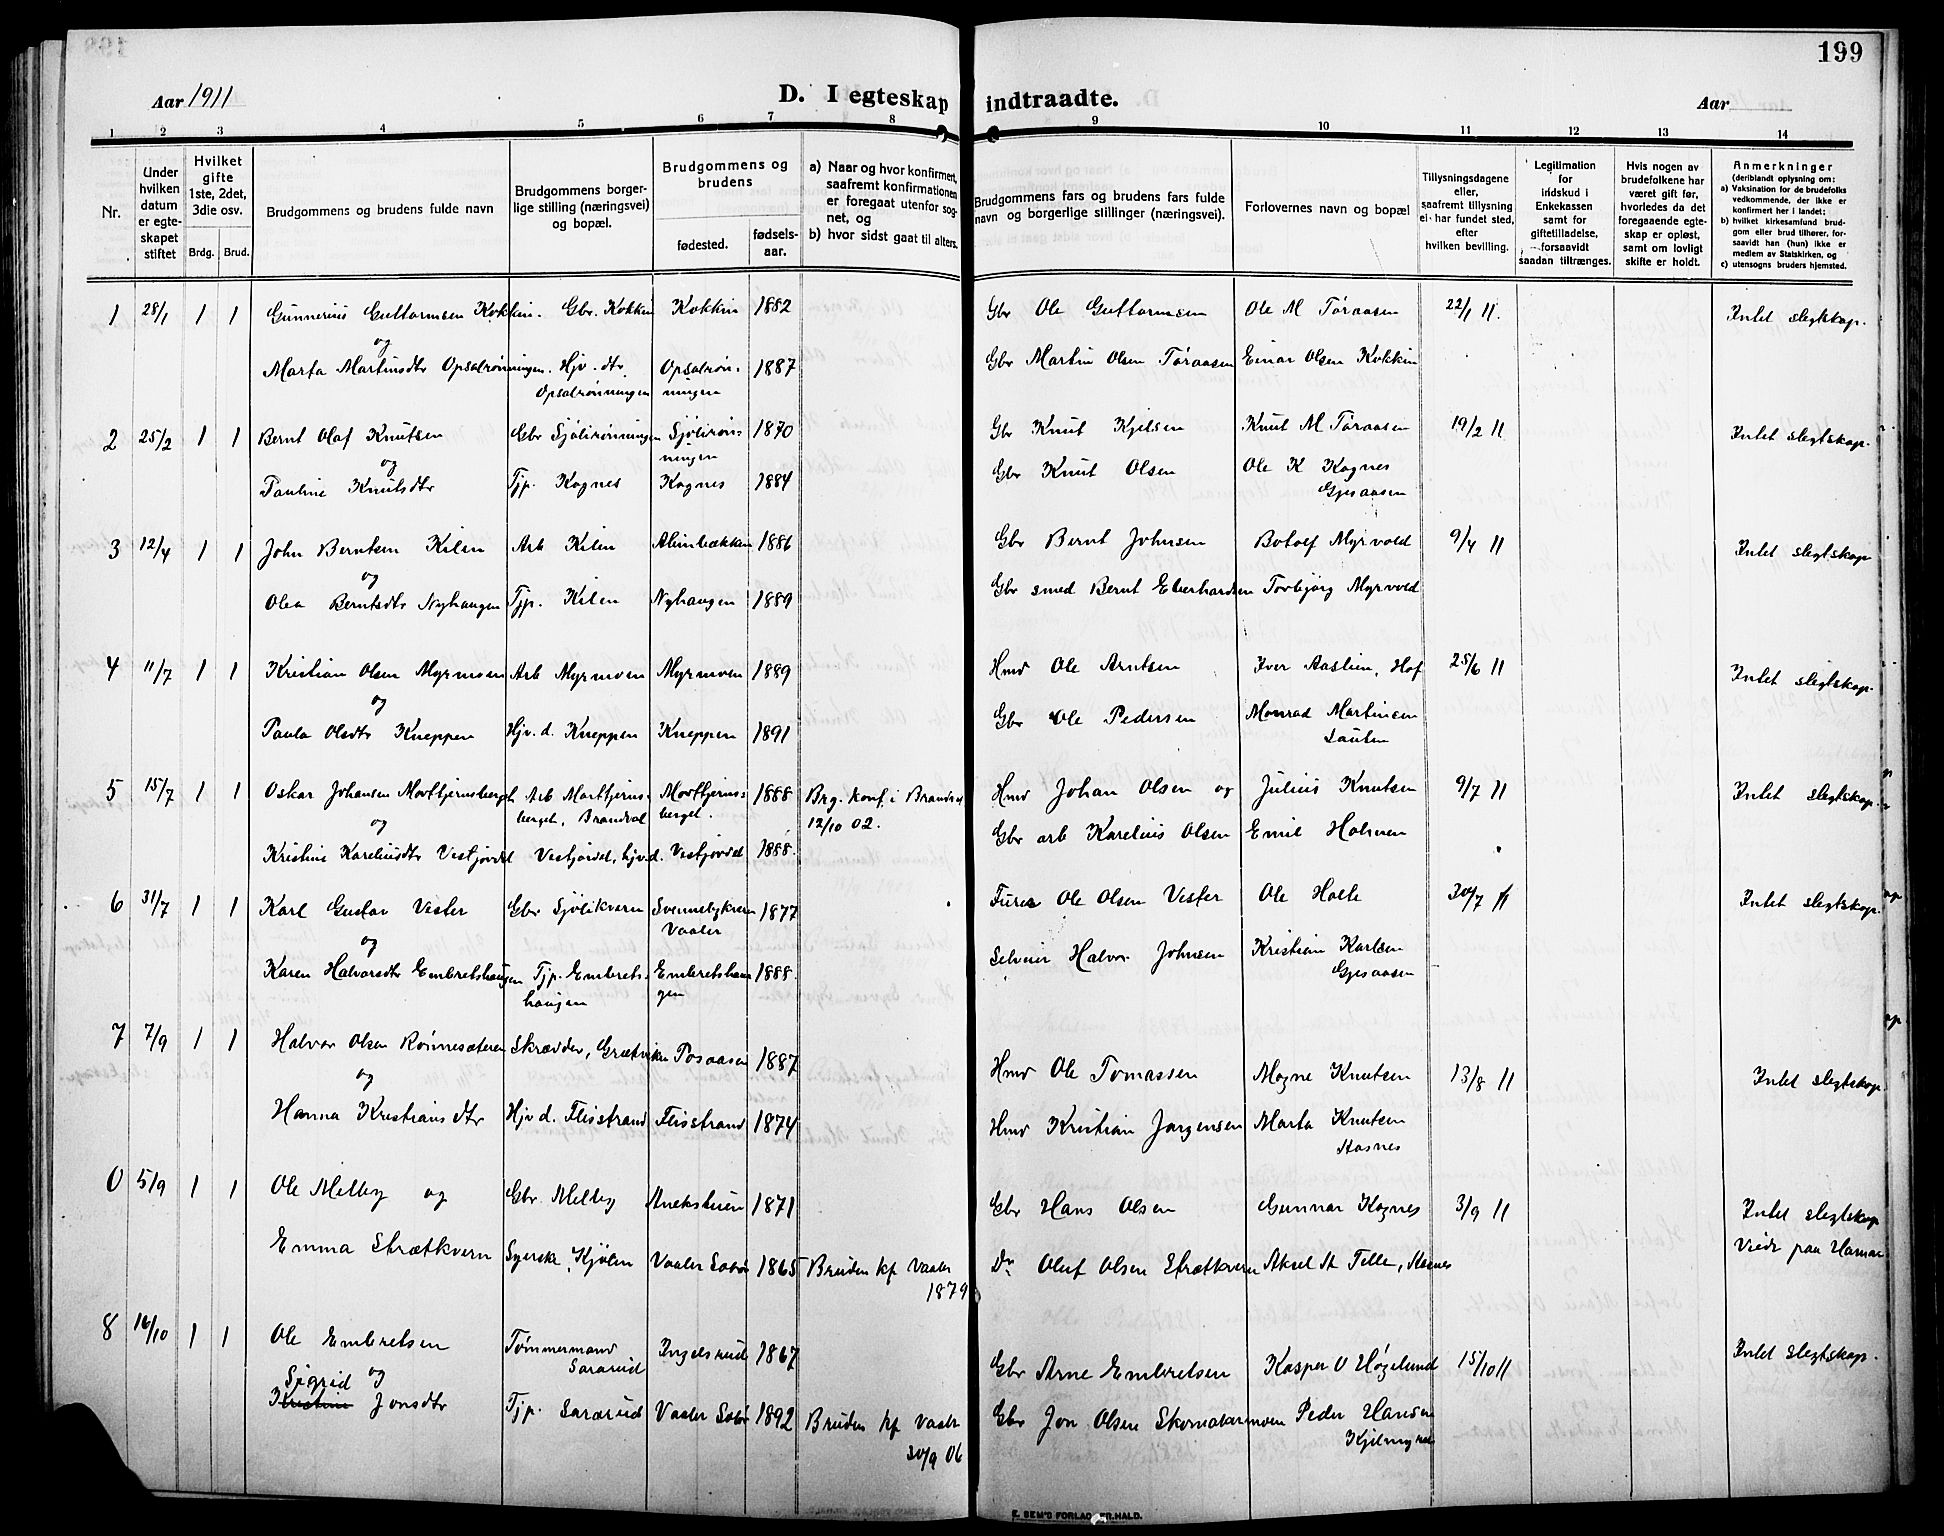 199
Aar 1911
D. I egteskap indtraadte.
Aar
1 2 3 4 5 6 7 8 9 10 11 12 13 14
Nr.
Under hvilken datum er egteskapet stiftet
Hvilket gifte 1ste, 2det, 3die osv.
Brdg. Brud.
Brudgommens og brudens fulde navn
Brudgommens borgerlige stilling (næringsvei) og bopæl.
Brudgommens og brudens
fødested.
fødselsaar.
a) Naar og hvor konfirmert, saafremt konfirmationen er foregaat utenfor sognet, og
b) hvor sidst gaat til alters.
Brudgommens fars og brudens fars fulde navn og borgerlige stillinger (næringsvei).
Forlovernes navn og bopæl
Tillysningsdagene eller, saafremt tillysning ei har fundet sted, efter hvilken bevilling.
Legitimation for indskud i Enkekassen samt for giftetilladelse, forsaavidt saadan tiltrænges.
Hvis nogen av brudefolkene har været gift før, hvorledes da det foregaaende egteskap er opløst, samt om lovligt skifte er holdt.
Anmerkninger
(deriblandt oplysning om:
a) Vaksination for de brudefolks vedkommende, der ikke er konfirmert her i landet;
b) hvilket kirkesamfund brudgom eller brud tilhører, forsaavidt han (hun) ikke er medlem av Statskirken, og
c) utensogns bruders hjemsted.
1 28/1 1 1 Gunnerius Guttormsen Kokkin. Gbr. Kokkin Kokkin 1882 Gbr Ole Guttormsen Ole M Toraasen 22/1 11. Intet slegtskap.
og
Marta Martinsdtr Opsalrønningen. Hjv. dtr. Opsalrønningen Opsalrønningen 1887 Gbr Martin Olsen Toraasen Einar Olsen Kokkin
2 25/2 1 1 Bernt Olaf Knutsen Gbr Sjølirønningen Sjølirønningen 1870 Gbr Knut Kjelsen Knut M Toraasen 19/2 11 Intet slegtskap.
og
Pauline Knutsdtr Tjp. Kognes Kognes 1884 Gbr Knut Olsen Ole K Kognes Gjesaasen
3 12/4 1 1 John Berntsen Kilen Arb Kilen Almbækken 1886 Gbr Bernt Johnsen Botolf Myrvold 9/4 11 Intet slegtskap
og
Olea Berntsdtr Nyhaugen Tjp. Kilen Nyhaugen 1889 Gbr smed Bernt Eberhardsen Torbjørg Myrvold
4 11/7 1 1 Kristian Olsen Myrmoen Arb Myrmoen Myrmoen 1889 Hmd Ole Arntsen Iver Aaslien, Hof 25/6 11 Intet slegtskap.
og
Paula Olsdtr Kneppen Hjv. d. Kneppen Kneppen 1891 Gbr Ole Pedersen Monrad Martinsen Sauten
5 15/7 1 1 Oskar Johansen Morttjernsberget Arb Morttjernsberget, Brandval Morttjernsberget. 1888 Brg. konf. i Brandval 12/10 02. Hmd Johan Olsen og Julius Knutsen 9/7 11 Intet slegtskap.
og
Kristine Kareliusdtr Vestjordet Vestjordet, hjv. d. Vestjordet 1888. Gbr arb Karelius Olsen Emil Holmen
6 31/7 1 1 Karl Gustav Vester Gbr Sjølikvern Svennebykvern Vaaler 1877 Furer Ole Olsen Vester Ole Holte 30/7 11 Intet slegtskap.
og
Karen Halvorsdtr Embretshaugen Tjp. Embretshaugen Embretshaugen 1888. Selveier Halvor Johnsen Kristian Karlsen Gjesaasen
7 7/9 1 1 Halvor Olsen Rønnesæteren Skrædder, Grætviken Posaasen 1887 Hmd Ole Tomassen Mogne Knutsen 13/8 11 Intet slegtskap
og
Hanna Kristiansdtr Hjv d. Flisstrand Flisstrand 1874 Hmd Kristian Jørgensen Marta Knutsen Aasnes
0 5/9 1 1 Ole Melby og Gbr. Melby Anekstuen 1871 Gbr Hans Olsen Gunnar Kognes 3/9 11 Intet slegtskap
Viedt paa Hamar
Emma Strætkvern Syerske, Kjølen Vaaler Solør 1865 Bruden kf Vaaler 1879 Dr Oluf Olsen Strætkvern Aksel St Telle, Aasnes
8 16/10 1 1 Ole Embretsen Tømmermand Sararud Ingelsrud 1867 Gbr Arne Embretsen Kasper O Høgelund 15/10 11 Intet slegtskap.
og
Sigrid Kristine Jonsdtr Tjp. Sararud Vaaler Solør 1892 Bruden kf Vaaler 30/9 06 Gbr Jon Olsen Skomakermoen Peder Hansen Kjelmyren
E. SEM'S FORLAG, FR.HALD.